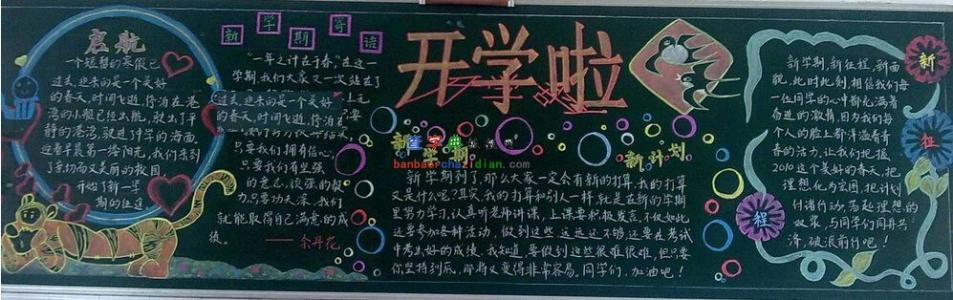 启航
一个短暂的寒假已
过去,迎来的是一个美好
的春天,时间飞逝,停泊在港
湾的小船已经出航,驶出了平
静的港湾,驶进冲学的海面,
迎着早晨第一缕阳光,我们告别
了亲切而又美丽的校园,
开始了新一年
期的征途
新学期寄语
"一年之计在于春",在这一
学期我们大家又一次站在了
过去,迎来的是一个美好
的春天,时间飞逝,停泊在
只要我们拥有信心,
只要我们有坚强
的意志,顽强的毅
力,只要功夫深,我们
就能取得自己满意的成
绩。
——余丹花
开学啦
新学期
新计划
banbao.chazidian.com
新学期到了,那么大家一定会有新的打算,我的打算
又是什么呢?其实,我的打算和别人一样,就是在新的学期
里努力学习,认真听老师讲课,上课要积极发言,不仅如此
还要参加各种活动,做到这些,远远还不够还要在考试
中考出好的成绩,我知道,要做到这些很难很难,但只要
你坚持到底,那将又变得非常容易,同学们,加油吧!
新征程
新学期,新征程,新面
貌,此时此刻,相信我们每
一位同学的心中都充满着
奋进的激情,因为我们每
个人的脸上都洋溢着青
春的活力,让我们把握
2010这个美好的春天,把
理想化为宏图,把计划
付诸行动,荡起理想的
双桨,与同学们同舟共
济,破浪前行吧!